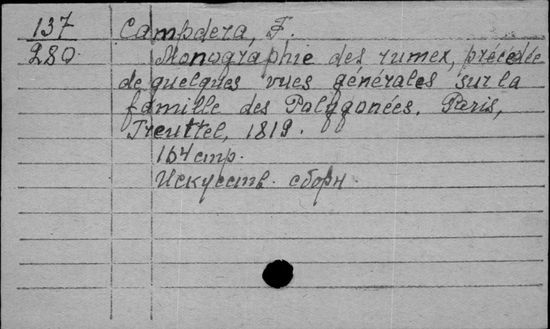 137 Campdera, F.
280 Monographie des rumex, précédée
de quelques vues générales sur la
famille des Polygonées. Paris,
Treuttel, 1819.
164 стр.
Искусств. сборн.